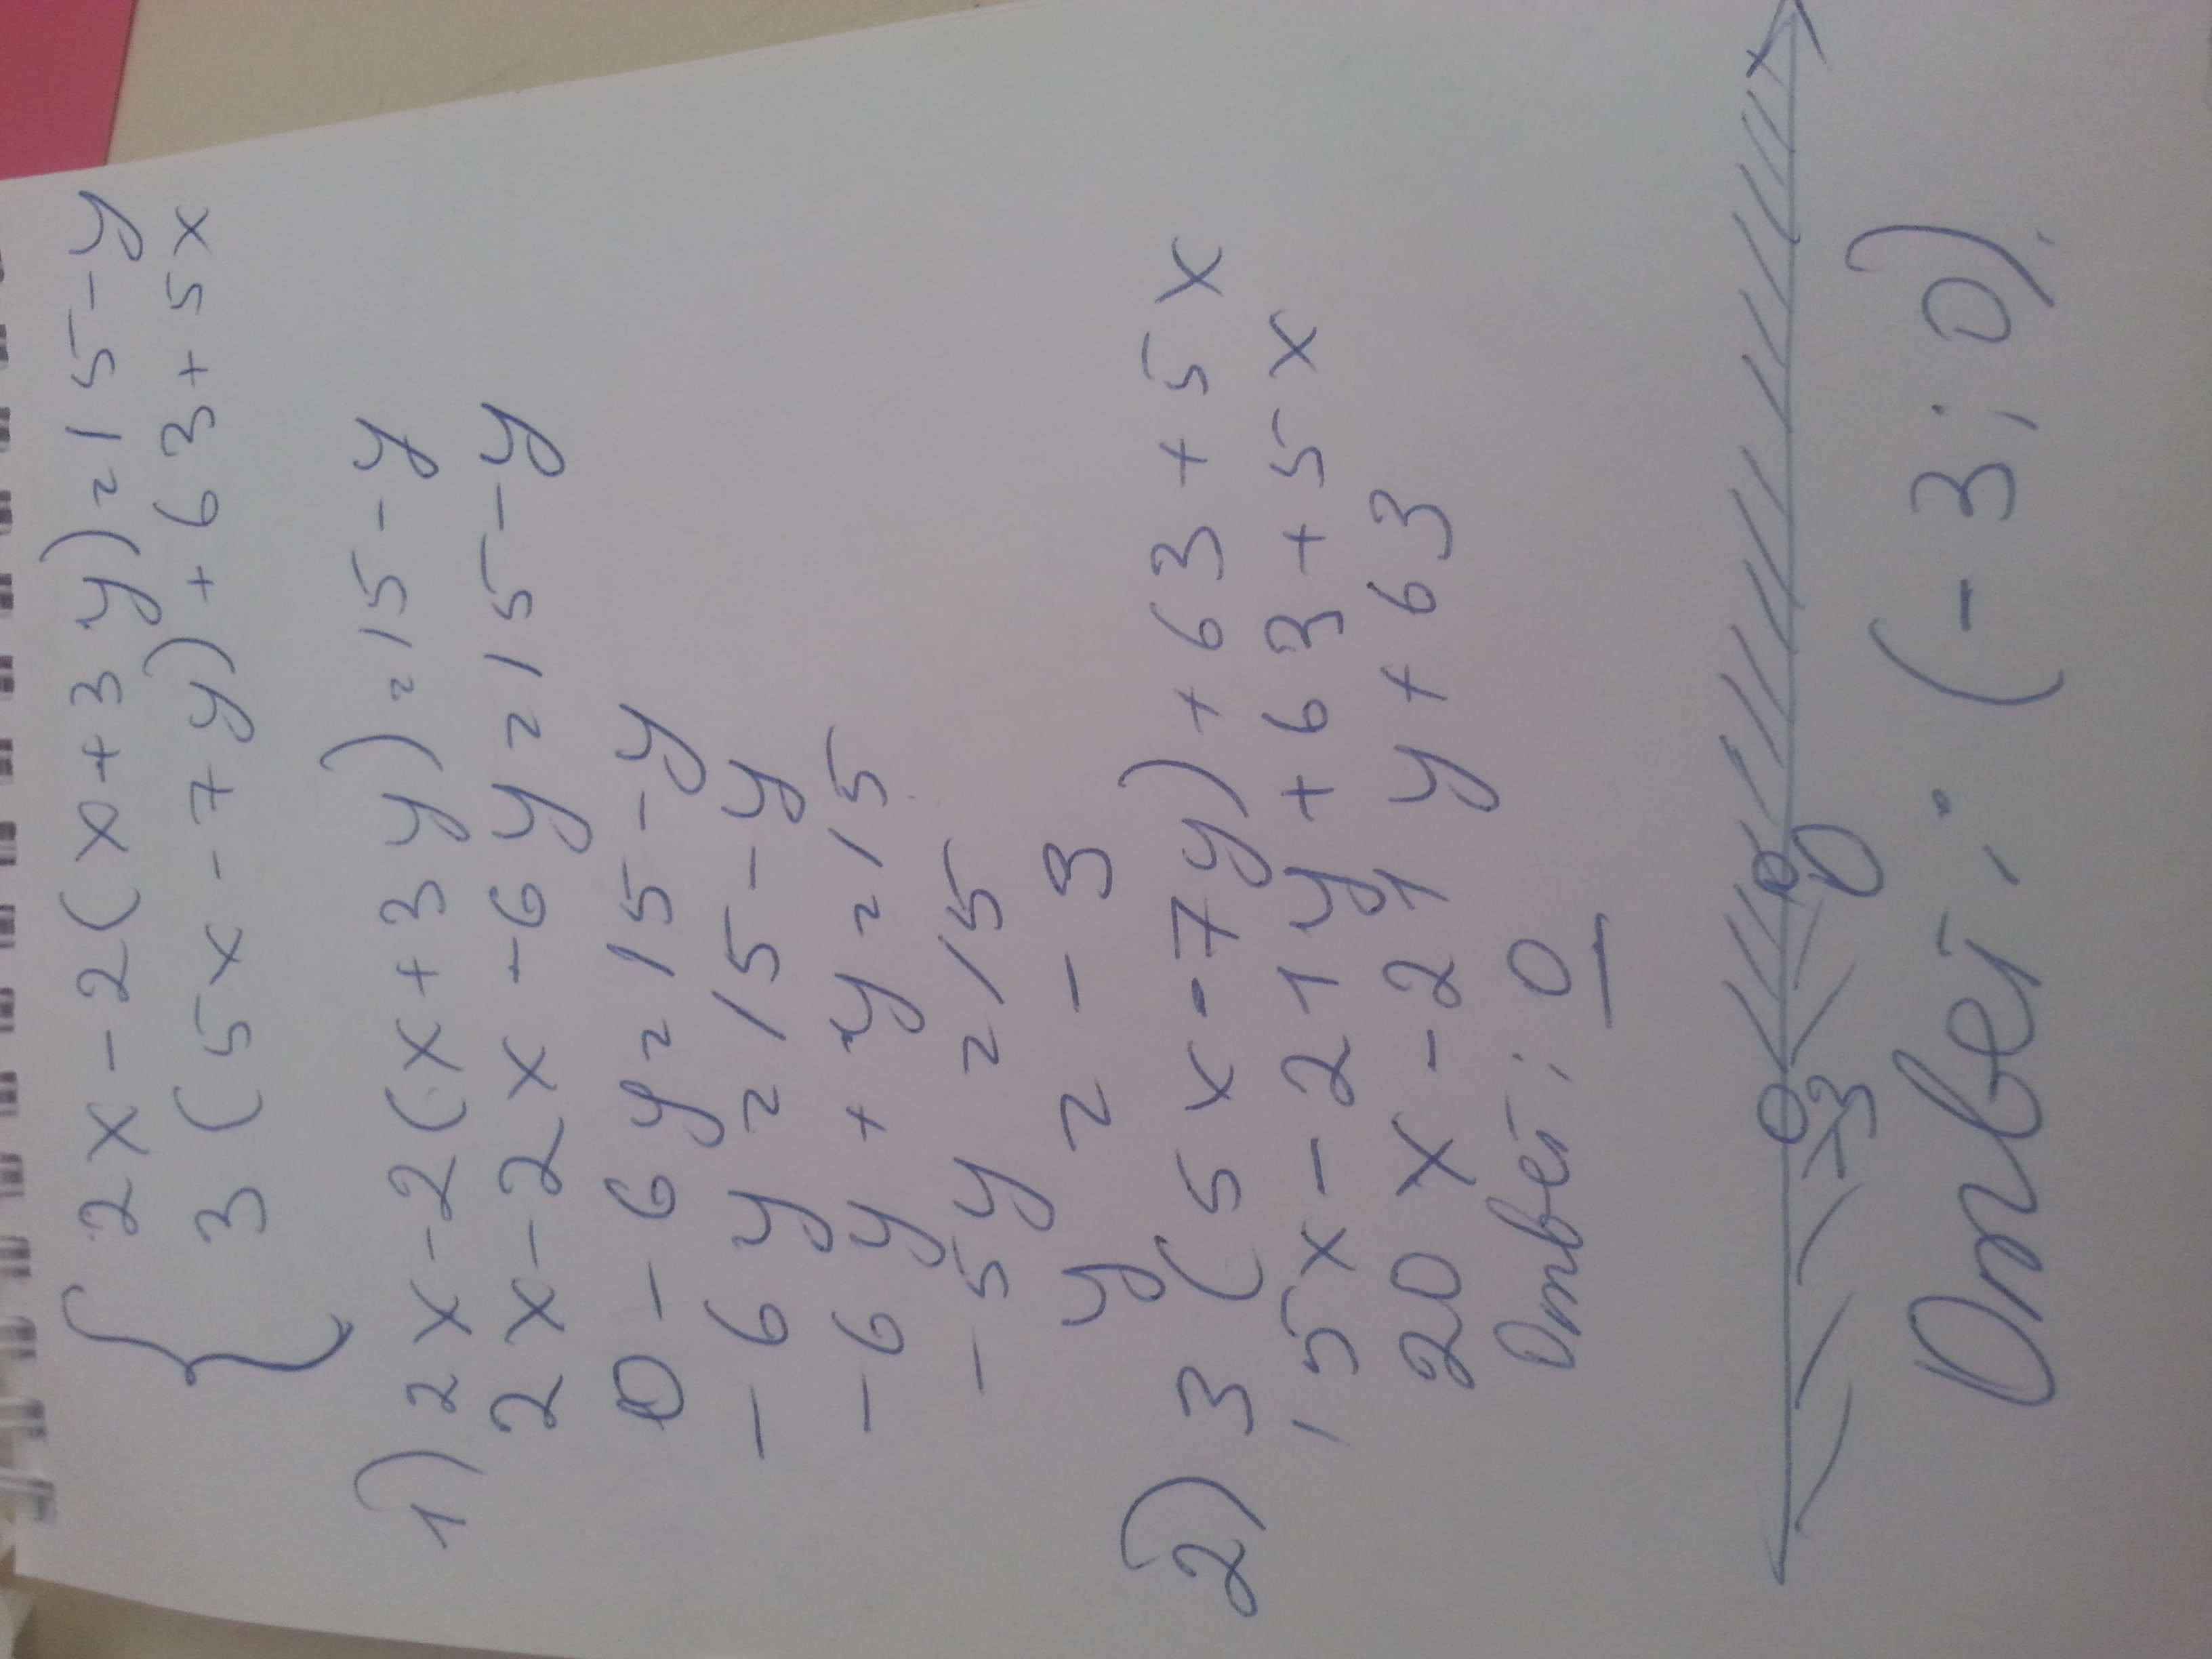 { 2x-2(x+3y)=15-y
3(5x-7y)+63+5x
1) 2x-2(x+3y)=15-y
2x-2x-6y=15-y
0-6y=15-y
-6y=15-y
-6y+y=15
-5y=15
y=-3
2) 3(5x-7y)+63+5x
15x-21y+63+5x
20x-21y+63
Ответ: 0
x
-3 0
Ответ: (-3; 0).